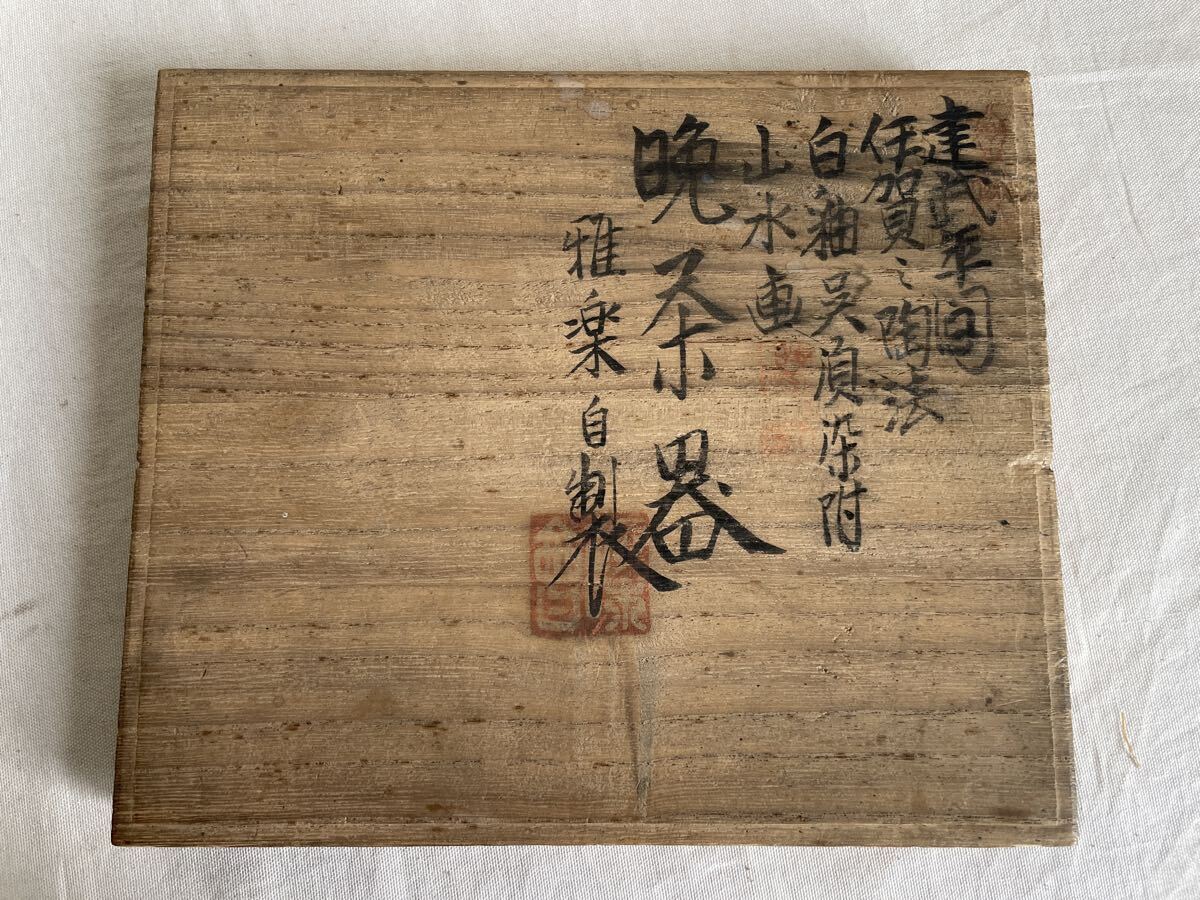 建武年間
伊賀之陶法
白釉呉須染附
山水画
晩茶器
雅楽自製